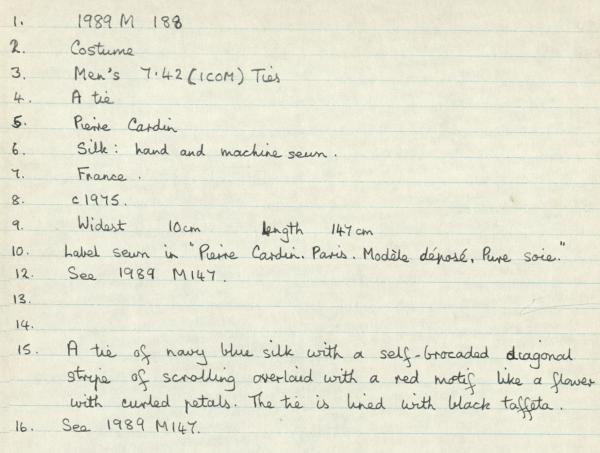 1. 1989 M 188
2. Costume
3. Men's 7.42 (ICOM) Ties
4. A tie
5. Pierre Cardin
6. Silk: hand and machine sewn.
7. France.
8. c1975.
9. Widest 10cm Length 147cm
10. Label sewn in "Pierre Cardin. Paris. Modèle déposé, Pure soie."
12. See 1989 M147.
13.
14.
15. A tie of navy blue silk with a self-brocaded diagonal
stripe of scrolling overlaid with a red motif like a flower
with curled petals. The tie is lined with black taffeta.
16. See 1989 M147.